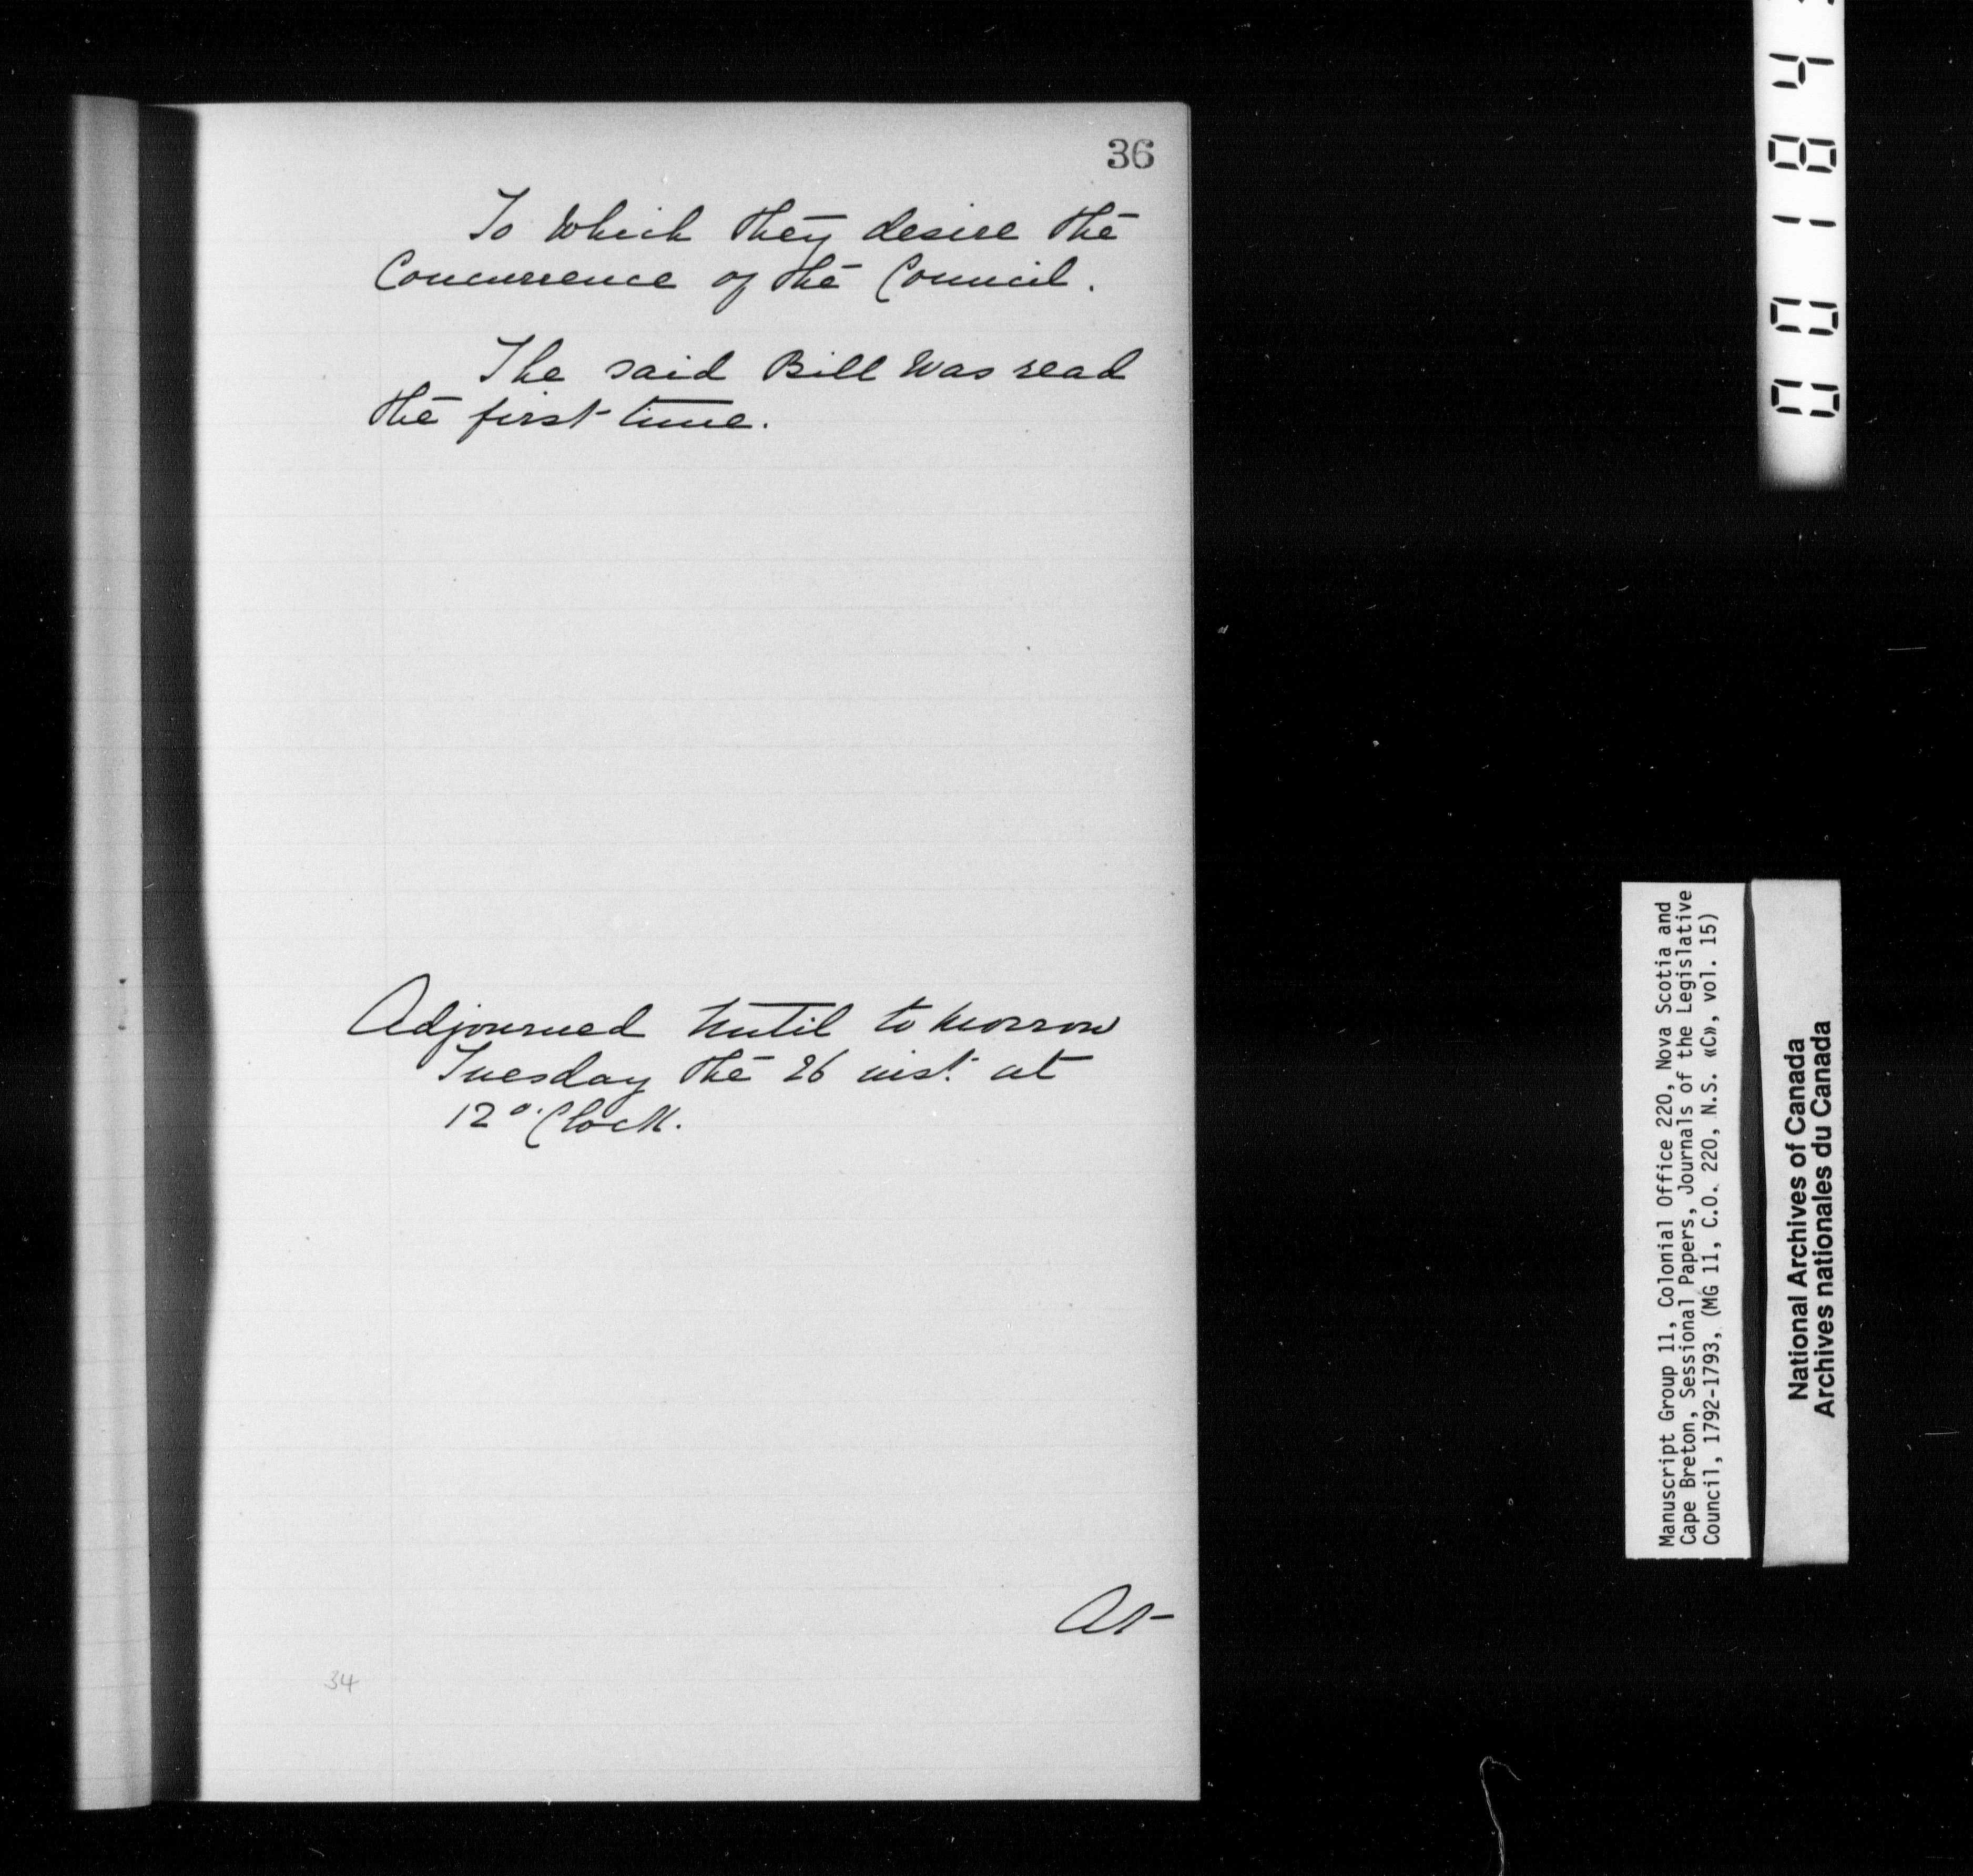 36
To Which they desire the
Concurrence of the Council.
The said Bill Was read
the first time.
Adjourned Until to morrow
Tuesday the 26 inst. at
12 o'Clock.
At
34
Manuscript Group 11, Colonial Office 220, Nova Scotia and
Cape Breton, Sessional Papers, Journals of the Legislative
Council, 1792-1793, (MG 11, C.O. 220, N.S. «C», vol. 15)
National Archives of Canada
Archives nationales du Canada
00184